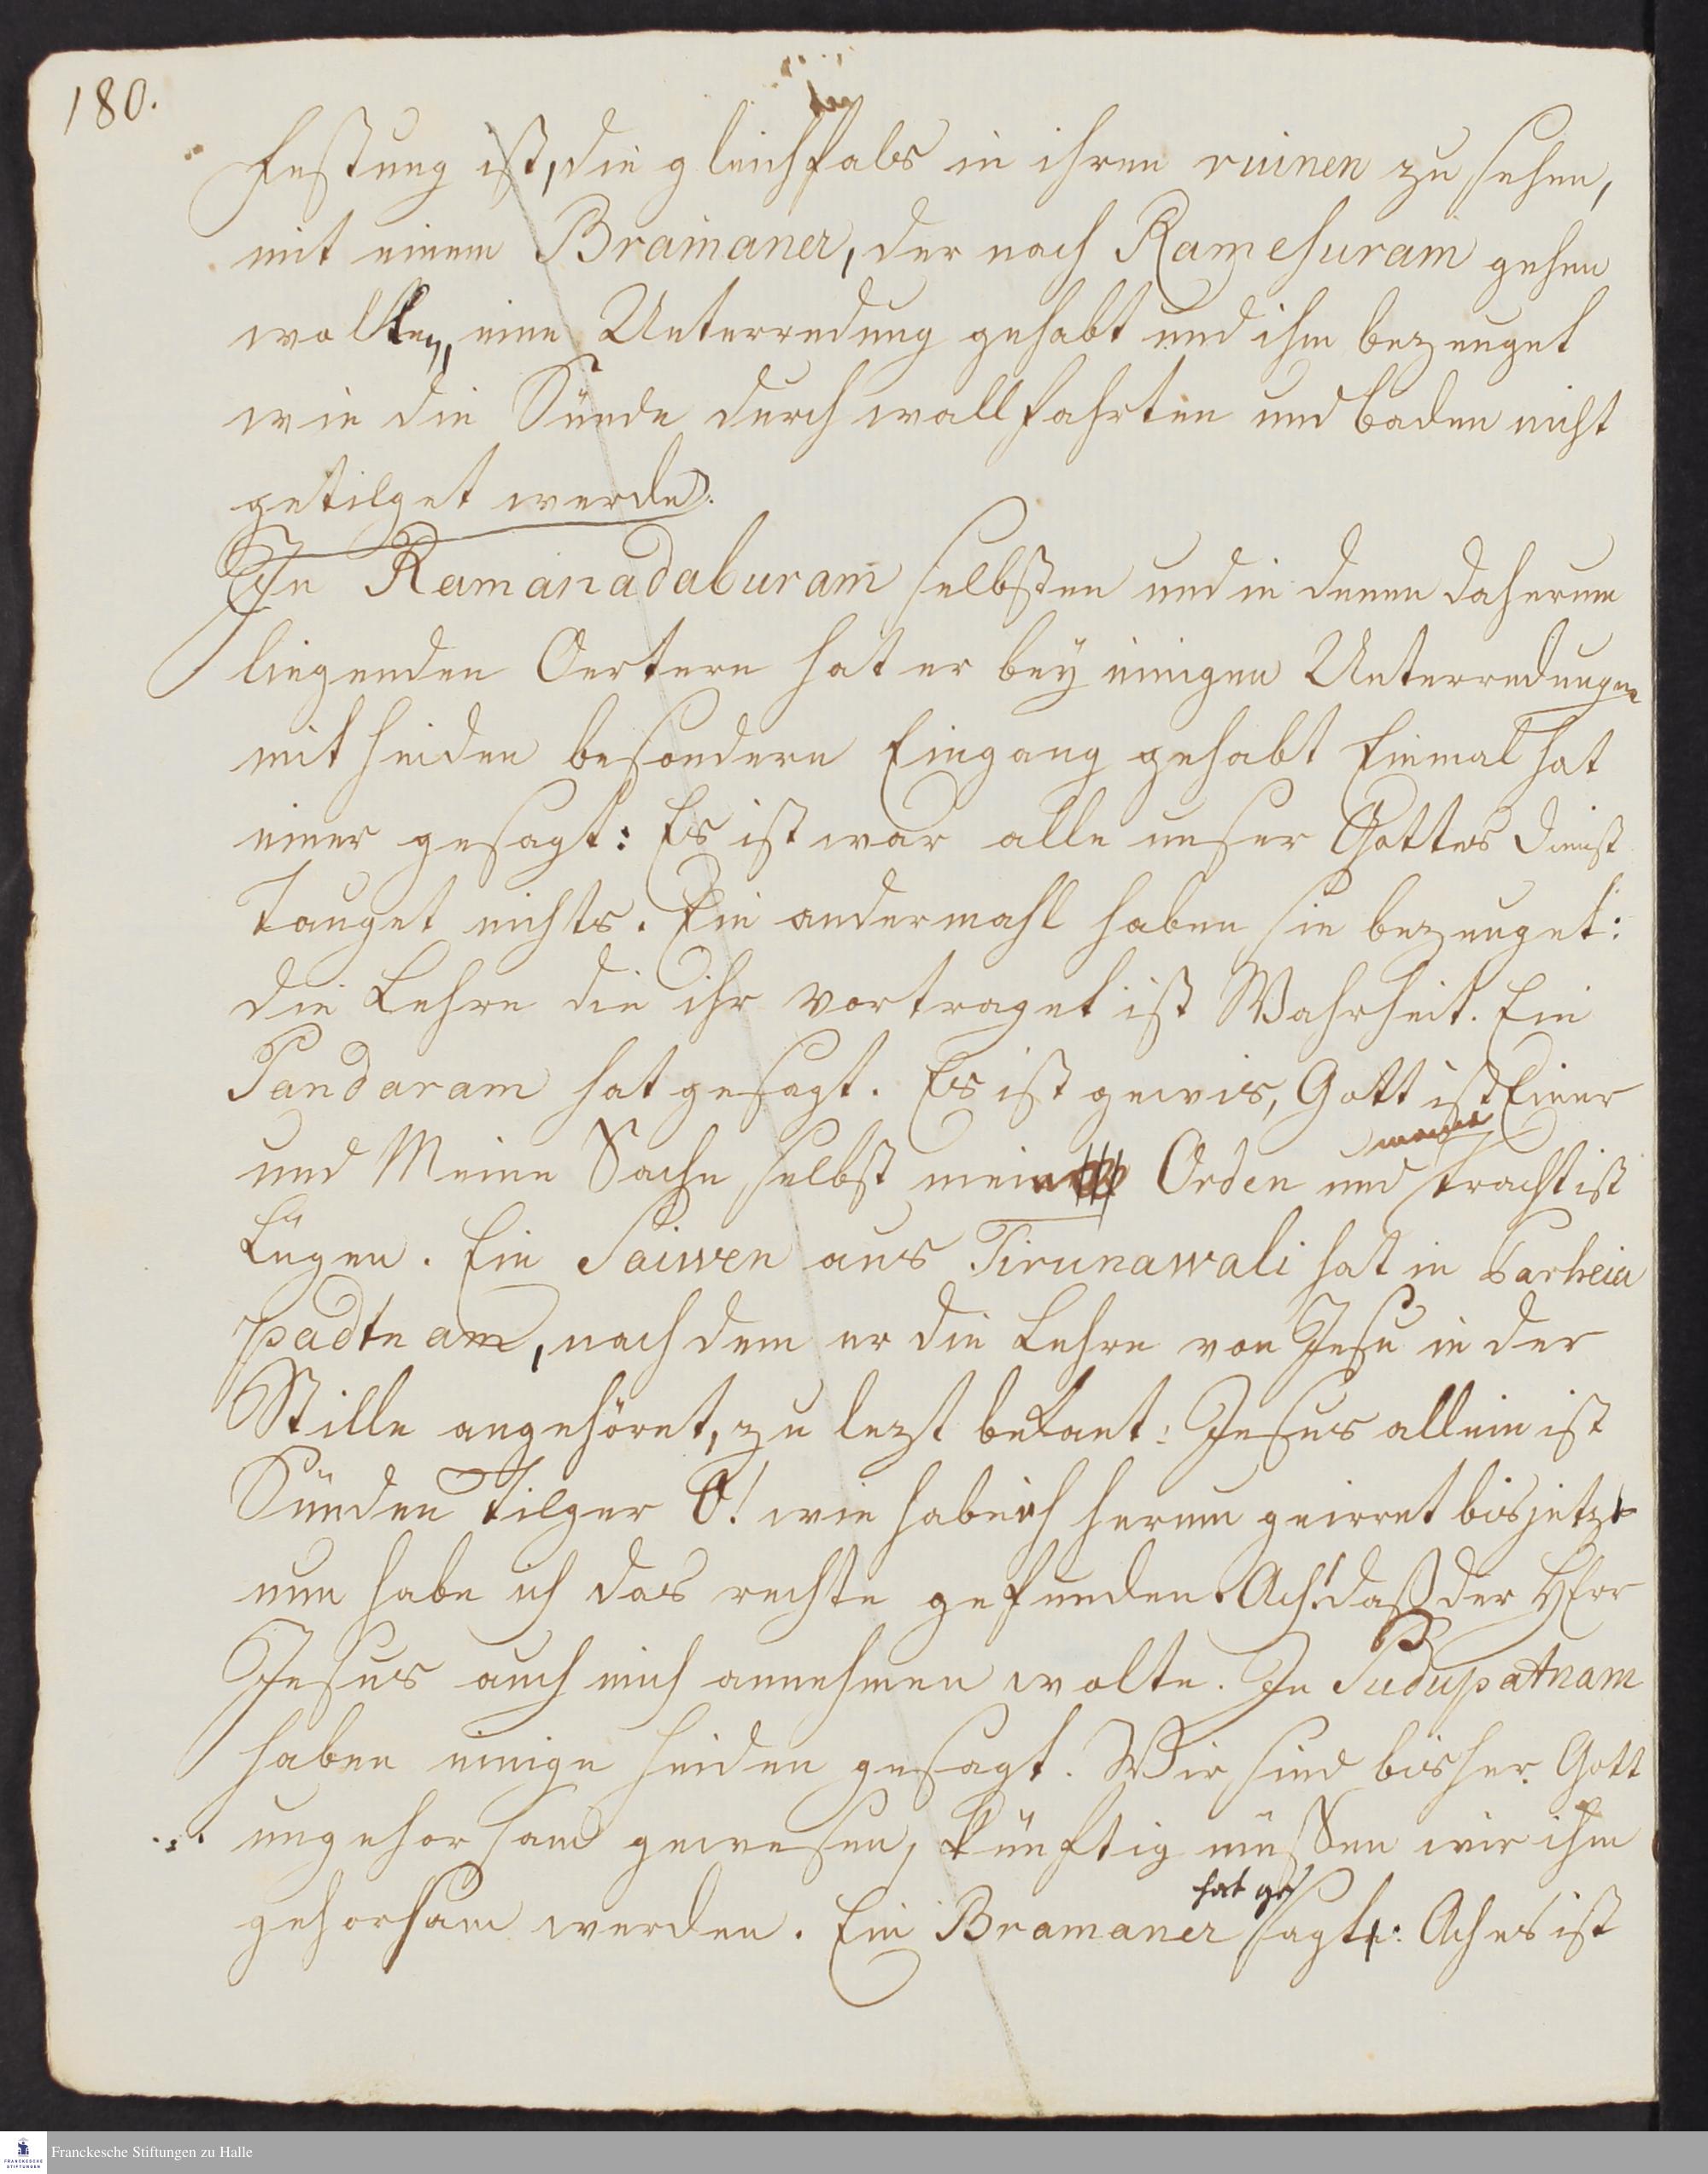 180.
Festung ist, die gleichfals in ihren ruinen zu sehen,
mit einem Bramaner, der nach Ramesuram gehen
wolte, eine Unterredung gehabt und ihm bezeuget
wie die Sünde durch wallfahrten und baden nicht
getilget werde.
In Ramanadaburam selbsten und in denen daherum
liegenden Oertern hat er bey einigen Unterredungen
mit Heiden besondern Eingang gehabt Einmal hat
einer gesagt: Es ist war alle unser Gottes dienst
Tauget nichts. Ein andermahl haben sie bezeuget:
die Lehre die ihr vortraget ist Wahrheit. Ein
Pandaram hat gesagt. Es ist gewis, Gott ist Einer
und Meine Sache selbst mein Orden und meine Tracht ist
Lügen. Ein Saiwen aus Tirunawali hat in
padtnam, nach dem er die Lehre von Jesu in der
Stille angehöret, zu lezt bekant: Jesus allein ist
Sünden Tilger O! wie habe ich herum geirret bis jetzt
nun habe ich das rechte gefunden. Ach! daß der HErr
Jesus auch mich annehmen wolte. In Pudupatnam
haben einige Heiden gesagt. Wir sind bisher Gott
ungehorsam gewesen, künftig müssen wir ihm
gehorsam werden. Ein Bramaner hat gesagt: Ach es ist
Franckesche Stiftungen zu Halle
FRANCKESCHE STIFTUNGEN